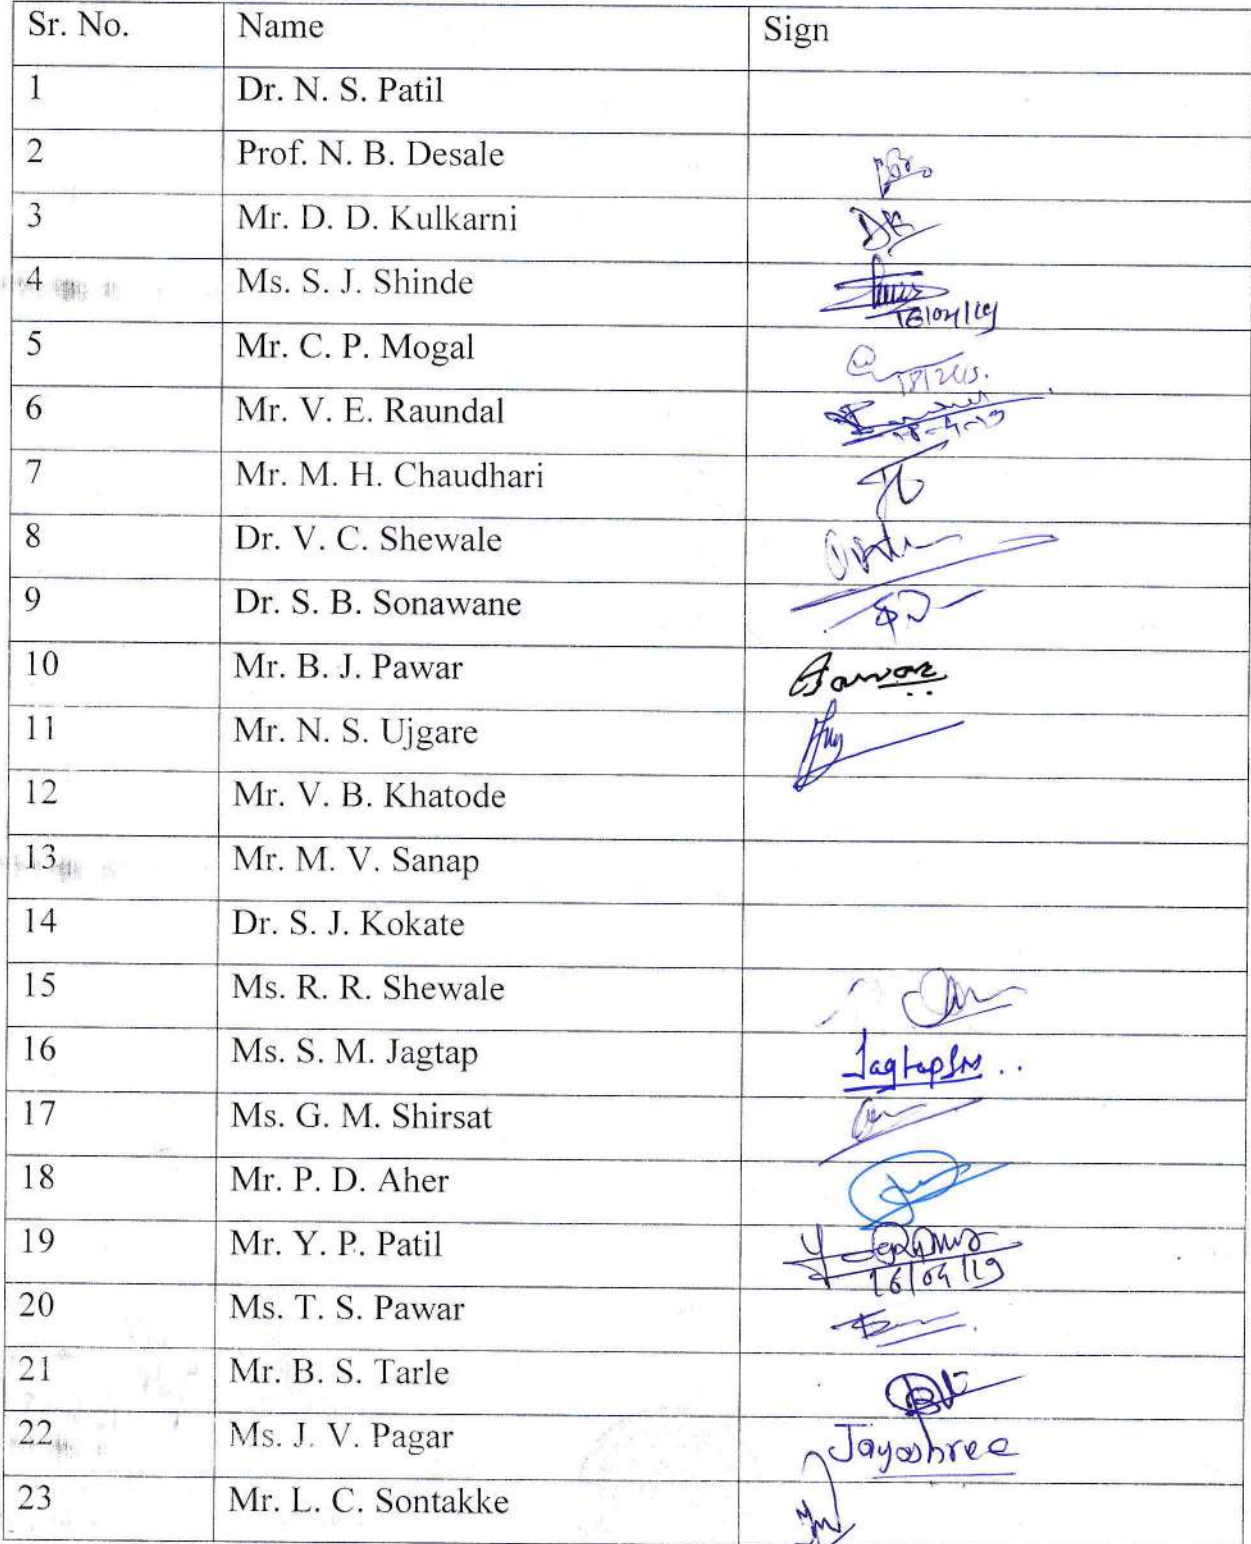 Sr. No. Name Sign
1 Dr. N. S. Patil
2 Prof. N. B. Desale
3 Mr. D. D. Kulkarni DK
4 Ms. S. J. Shinde
16/04/19
5 Mr. C. P. Mogal
6 Mr. V. E. Raundal
18-4-19
7 Mr. M. H. Chaudhari
8 Dr. V. C. Shewale
9 Dr. S. B. Sonawane
10 Mr. B. J. Pawar Pawar
11 Mr. N. S. Ujgare
12 Mr. V. B. Khatode
13 Mr. M. V. Sanap
14 Dr. S. J. Kokate
15 Ms. R. R. Shewale
16 Ms. S. M. Jagtap Jagtap SM
17 Ms. G. M. Shirsat
18 Mr. P. D. Aher
19 Mr. Y. P. Patil
16/04/19
20 Ms. T. S. Pawar
21 Mr. B. S. Tarle
22 Ms. J. V. Pagar Jayashree
23 Mr. L. C. Sontakke